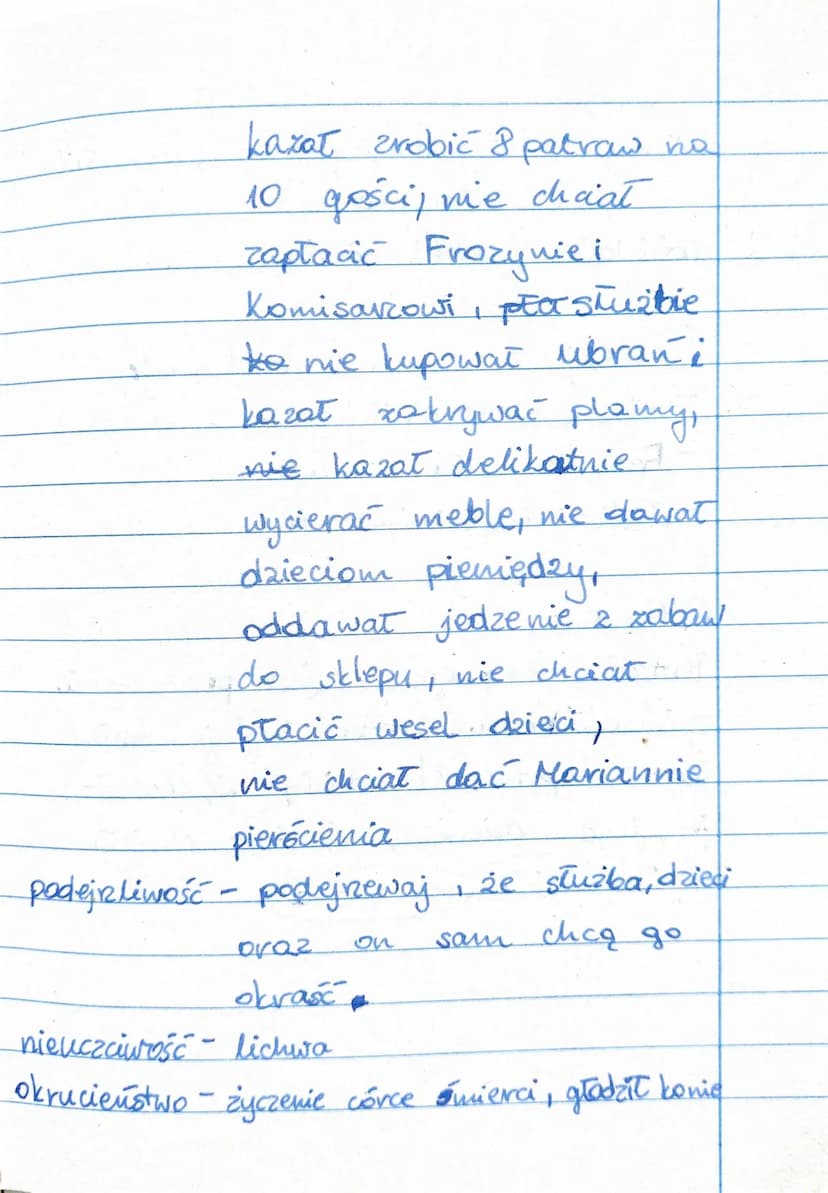 kazał zrobić 8 patraw na
10 gości, nie chciał
zapłacić Frozynie i
Komisarzowi, służbie
nie kupował ubrań i
kazał zakrywać plamy,
kazał delikatnie
wycierać meble, nie dawał
dzieciom pieniędzy,
oddawał jedzenie z zabaw
do sklepu, nie chciał
płacić wesel dzieci,
nie chciał dać Mariannie
pierścienia
podejrzliwość - podejrzewaj, że służba, dzieci
oraz on sam chcą go
okraść.
nieuczciwość - lichwa
okrucieństwo - życzenie córce śmierci, głodził konie